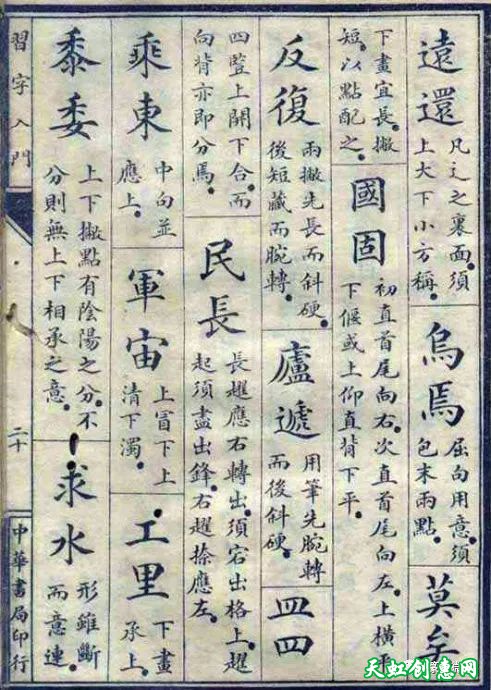 遠還
凡辶之裏面須
上大下小方稱
烏焉
屈勾用意須
包末兩點
莫矣
下畫宜長撇
短以點配之
國固
初直首尾向右次直首尾向左上橫平
下偃或上仰直背下平
反復
兩撇先長而斜硬
後短藏而腕轉
廬遞
用筆先腕轉
而後斜硬
皿四
四豎上開下合而
向背亦即分焉
民長
長趯應右轉出須宕出格上趯
起須盡出鋒右趯捺應左
乘東
中勾並
應上
軍宙
上冒下上
清下濁
工里
下畫
承上
黍委
上下撇點有陰陽之分不
分則無上下相承之意
求水
形雖斷
而意連
習字入門
二十
中華書局印行
天虹创意网